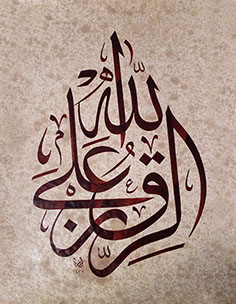 الرزق على الله